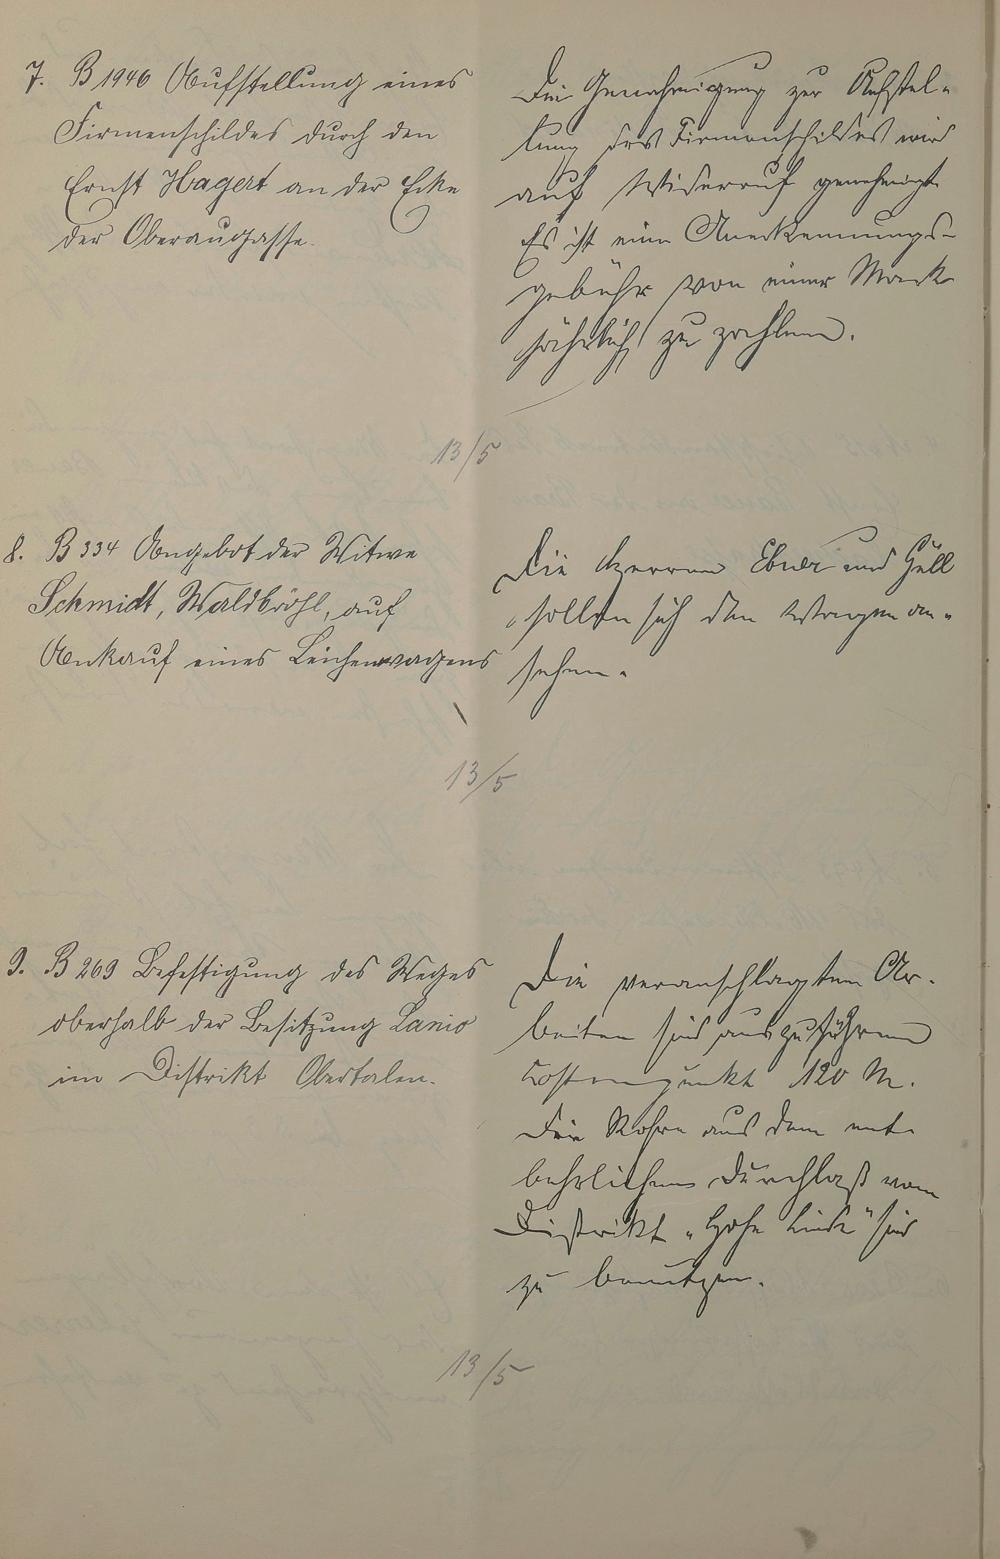 7. B 1946 Aufstellung eines
Firmenschildes durch den
Ernst Hagert an der Ecke
der Oberaugasse.
Die Genehmigung zur Aufstel-
lung des Firmenschildes wird
auf Widerruf genehmigt.
Es ist eine Anerkennungs-
gebühr von einer Mark
jährlich zu zahlen.
13/5
8. B 334 Angebot der Witwe
Schmidt, Waldbröhl, auf
Ankauf eines Leichenwagens
Die Herren Ebner und Füll
sollen sich den Wagen an-
sehen.
13/5
9. B 269 Befestigung des Weges
oberhalb der Besitzung Lanio
im Distrikt Obertalen.
Die veranschlagten Ar-
beiten sind auszuführen
Kostenpunkt 120 M.
Die Rohre aus dem ent-
behrlichen Durchlaß vom
Distrikt „Hohe Linde" sind
zu benutzen.
13/5